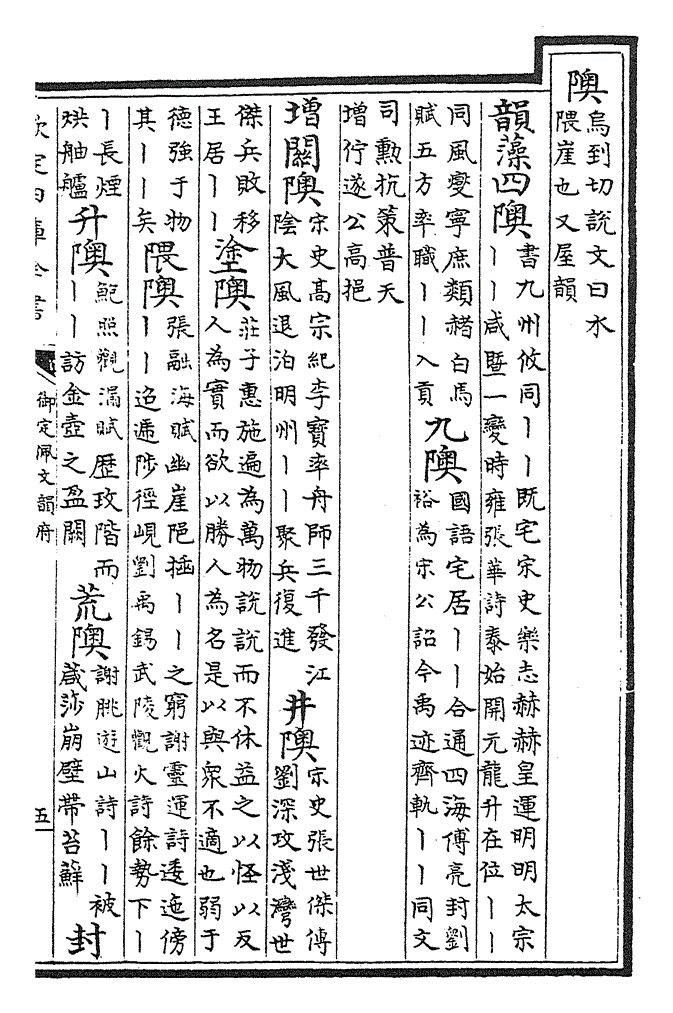 隩烏到切說文曰水
隈崖也又屋韻
韻藻四隩書九州攸同丨丨既宅宋史樂志赫赫皇運明明太宗
丨丨咸曁一變時雍張華詩泰始開元龍升在位丨丨
同風燮寧庶類赭白馬
賦五方率職丨丨入貢
九隩國語宅居丨丨合通四海傅亮封劉
裕為宋公詔今禹迹齊軌丨丨同文
司勲抗策普天
增佇遂公高挹
增關隩宋史高宗紀李寶率舟師三千發江
陰大風退泊明州丨丨聚兵復進
井隩宋史張世傑傳
劉深攻淺灣世
傑兵敗移
王居丨丨
塗隩莊子惠施遍為萬物說說而不休益之以怪以反
人為實而欲以勝人為名是以與衆不適也弱于
德強于物
其丨丨矣
隈隩張融海賦幽崖丨丨之窮謝靈運詩逶迤傍
丨丨迢遞陟徑峴劉禹錫武陵觀火詩餘勢下丨
丨長煙
烘舳艫
升隩鮑照觀漏賦歴玫階而
丨丨訪金壺之盈闕
荒隩謝朓遊山詩丨丨被
葴莎崩壁帶苔蘚
封
欽定四庫全書
御定佩文韻府
五